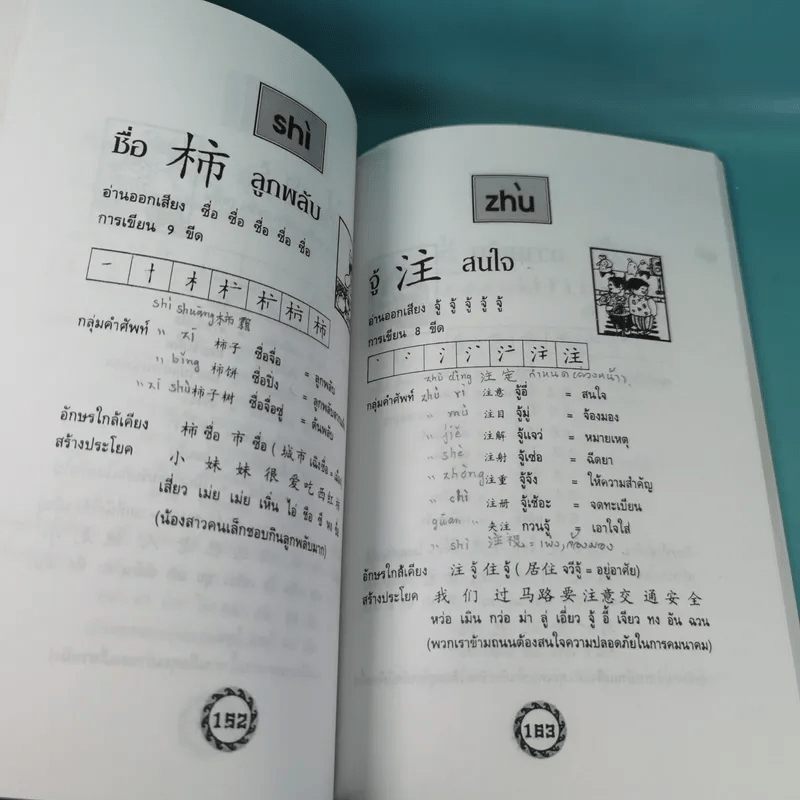 shì
ชื่อ 柿 ลูกพลับ
อ่านออกเสียง ซื่อ ซื่อ ซื่อ ซื่อ ซื่อ
การเขียน 9 ขีด
shì shuāng 柿霜
กลุ่มคำศัพท์ " zi 柿子 ซื่อจื่อ = ลูกพลับ
" bǐng 柿饼 ซื่อปิ่ง
" zi shù 柿子树 ซื่อจื่อซู่ = ต้นพลับ
อักษรใกล้เคียง 柿 ซื่อ 市 ซื่อ ( 城市
สร้างประโยค 小 妹 妹 很 爱 吃 西 红 柿
เสี่ยว เม่ย เม่ย เหิ่น ไอ้ ชือ ซี
(น้องสาวคนเล็กชอบกินลูกพลับมาก)
152
zhù
จู้ 注 สนใจ
อ่านออกเสียง จู้ จู้ จู้ จู้ จู้
การเขียน 8 ขีด
注
zhù dìng 注定 กำหนด(ล่วงหน้า)
กลุ่มคำศัพท์ zhù yì 注意 จู้อี่ = สนใจ
" mù 注目 จู้มู่ = จ้องมอง
" jiě 注解 จู้แจว่ = หมายเหตุ
" shè 注射 จู้เซ่อ = ฉีดยา
" zhòng 注重 จู้จ้ง = ให้ความสำคัญ
" chì 注册 จู้เช้อะ = จดทะเบียน
guān " 关注 กวนจู้ = เอาใจใส่
" shì 注视 = เพ่ง, จ้องมอง
อักษรใกล้เคียง 注 จู้ 住 จู้ ( 居住 จวีจู้ = อยู่อาศัย)
สร้างประโยค 我 们 过 马 路 要 注 意 交 通 安 全
หว่อ เมิน กว่อ ม่า ลู่ เอี่ยว จู้ อี้ เจียว ทง อัน ฉวน
(พวกเราข้ามถนนต้องสนใจความปลอดภัยในการคมนาคม)
163